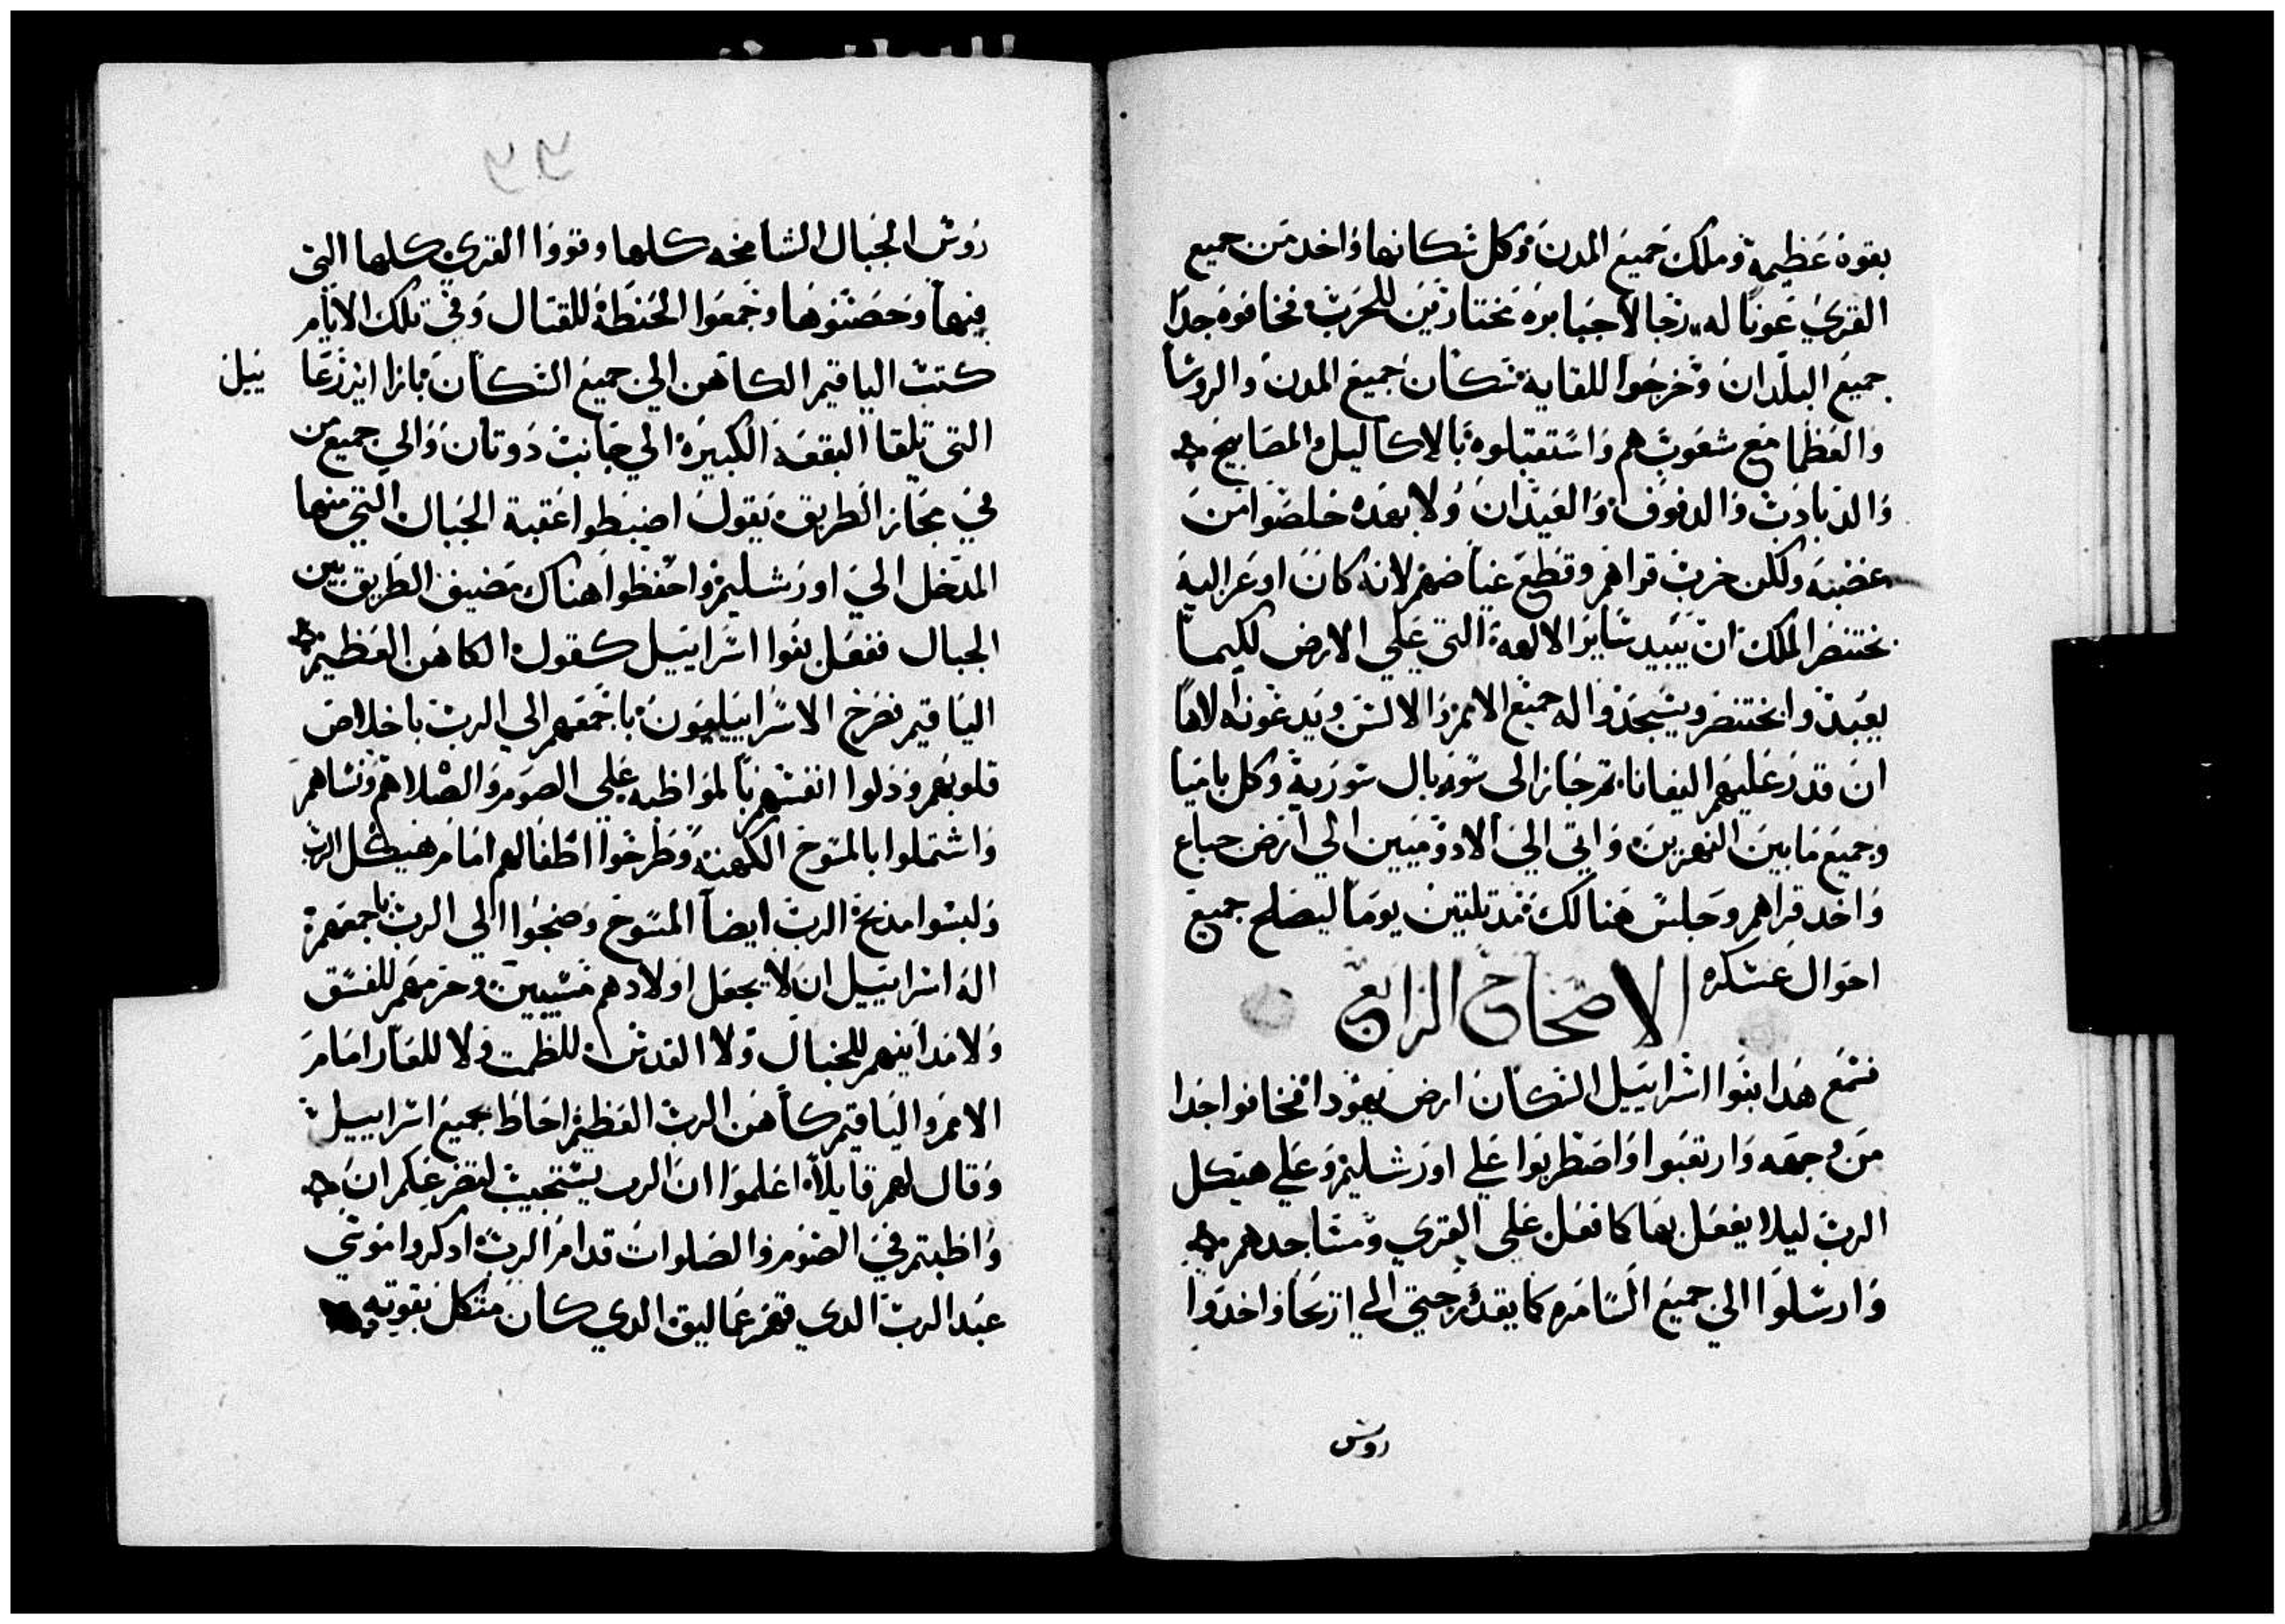 بقوة عظيمة وملك جميع المدن وكل سكانها واخد من جميع
القري عونا له رجالا جبابره مختارين للحرب فخافوه جدا
جميع البلدان وخرجوا للقاية سكان جميع المدن والروسا
والعظما مع شعوبهم واستقبلوه بالاكاليل والمصابيح
والدبادب والدفوف والعيدان ولا بهده خلصوا من
غضبه ولكن خرب قراهم وقطع غياضهم لانه كان اوعز اليه
بختنصر الملك ان يبيد ساير الالهة التي علي الارض لكيما
يعبدوا بختنصر ويسجدوا له جميع الامم والالسن ويدعونه الاها
ان قدر عليهم اليفانا ثم جاز الى سوريال سورية وكل باميا
وجميع ما بين النهرين واتي الي الادوميين الي ارض جباع
واخد قراهم وجلس هنالك مدة تلتين يوما ليصلح جميع
احوال عسكره
الاصحاح الرابع
فسمع هدا بنوا اسراييل السكان ارض يهودا فخافوا جدا
من وجهه وارتعبوا واضطربوا علي اورشليم وعلي هيكل
الرب ليلا يفعل بها كما فعل علي القري ومساجدهم
وارسلوا الي جميع السامره كما يقدم حتي الي اريحا واخدوا
روس
روس الجبال الشامخه كلها وقووا القري كلها التي
فيها وحصنوها وجمعوا الحنطة للقتال وفي تلك الايام
كتب الياقيم الكاهن الي جميع السكان بازا ايزرعا
ييل
التي تلقا البقعه الكبيره الي جانب دوتان والي جميع من
في مجاز الطريق يقول اضبطوا عقبة الجبال التي منها
المدخل الي اورشليم واحفظوا هناك مضيق الطريق بين
الجبال ففعل بنوا اسراييل كقول الكاهن العظيم
الياقيم فصرخ الاسراييليون باجمعهم الي الرب باخلاص
قلوبهم ودلوا انفسهم بالمواظبه علي الصوم والصلا هم ونساهم
واشتملوا بالمسوح الكهنة وطرحوا اطفالهم امام هيكل الرب
ولبسوا مدبح الرب ايضا المسوح وضجوا الي الرب باجمعهم
اله اسراييل ان لا يجعل اولادهم مسبيين وحرمهم للفسق
ولا مداينهم للخبال ولا القدس للظمت ولا للعار امام
الامم والياقيم كاهن الرب العظيم احاط بجميع اسراييل
وقال لهم قايلا اعلموا ان الرب يستجيب لتضرعكم ان
واظبتم في الصوم والصلوات قدام الرب ادكروا موسي
عبد الرب الدي قهر عماليق الدي كان متكل بقوته